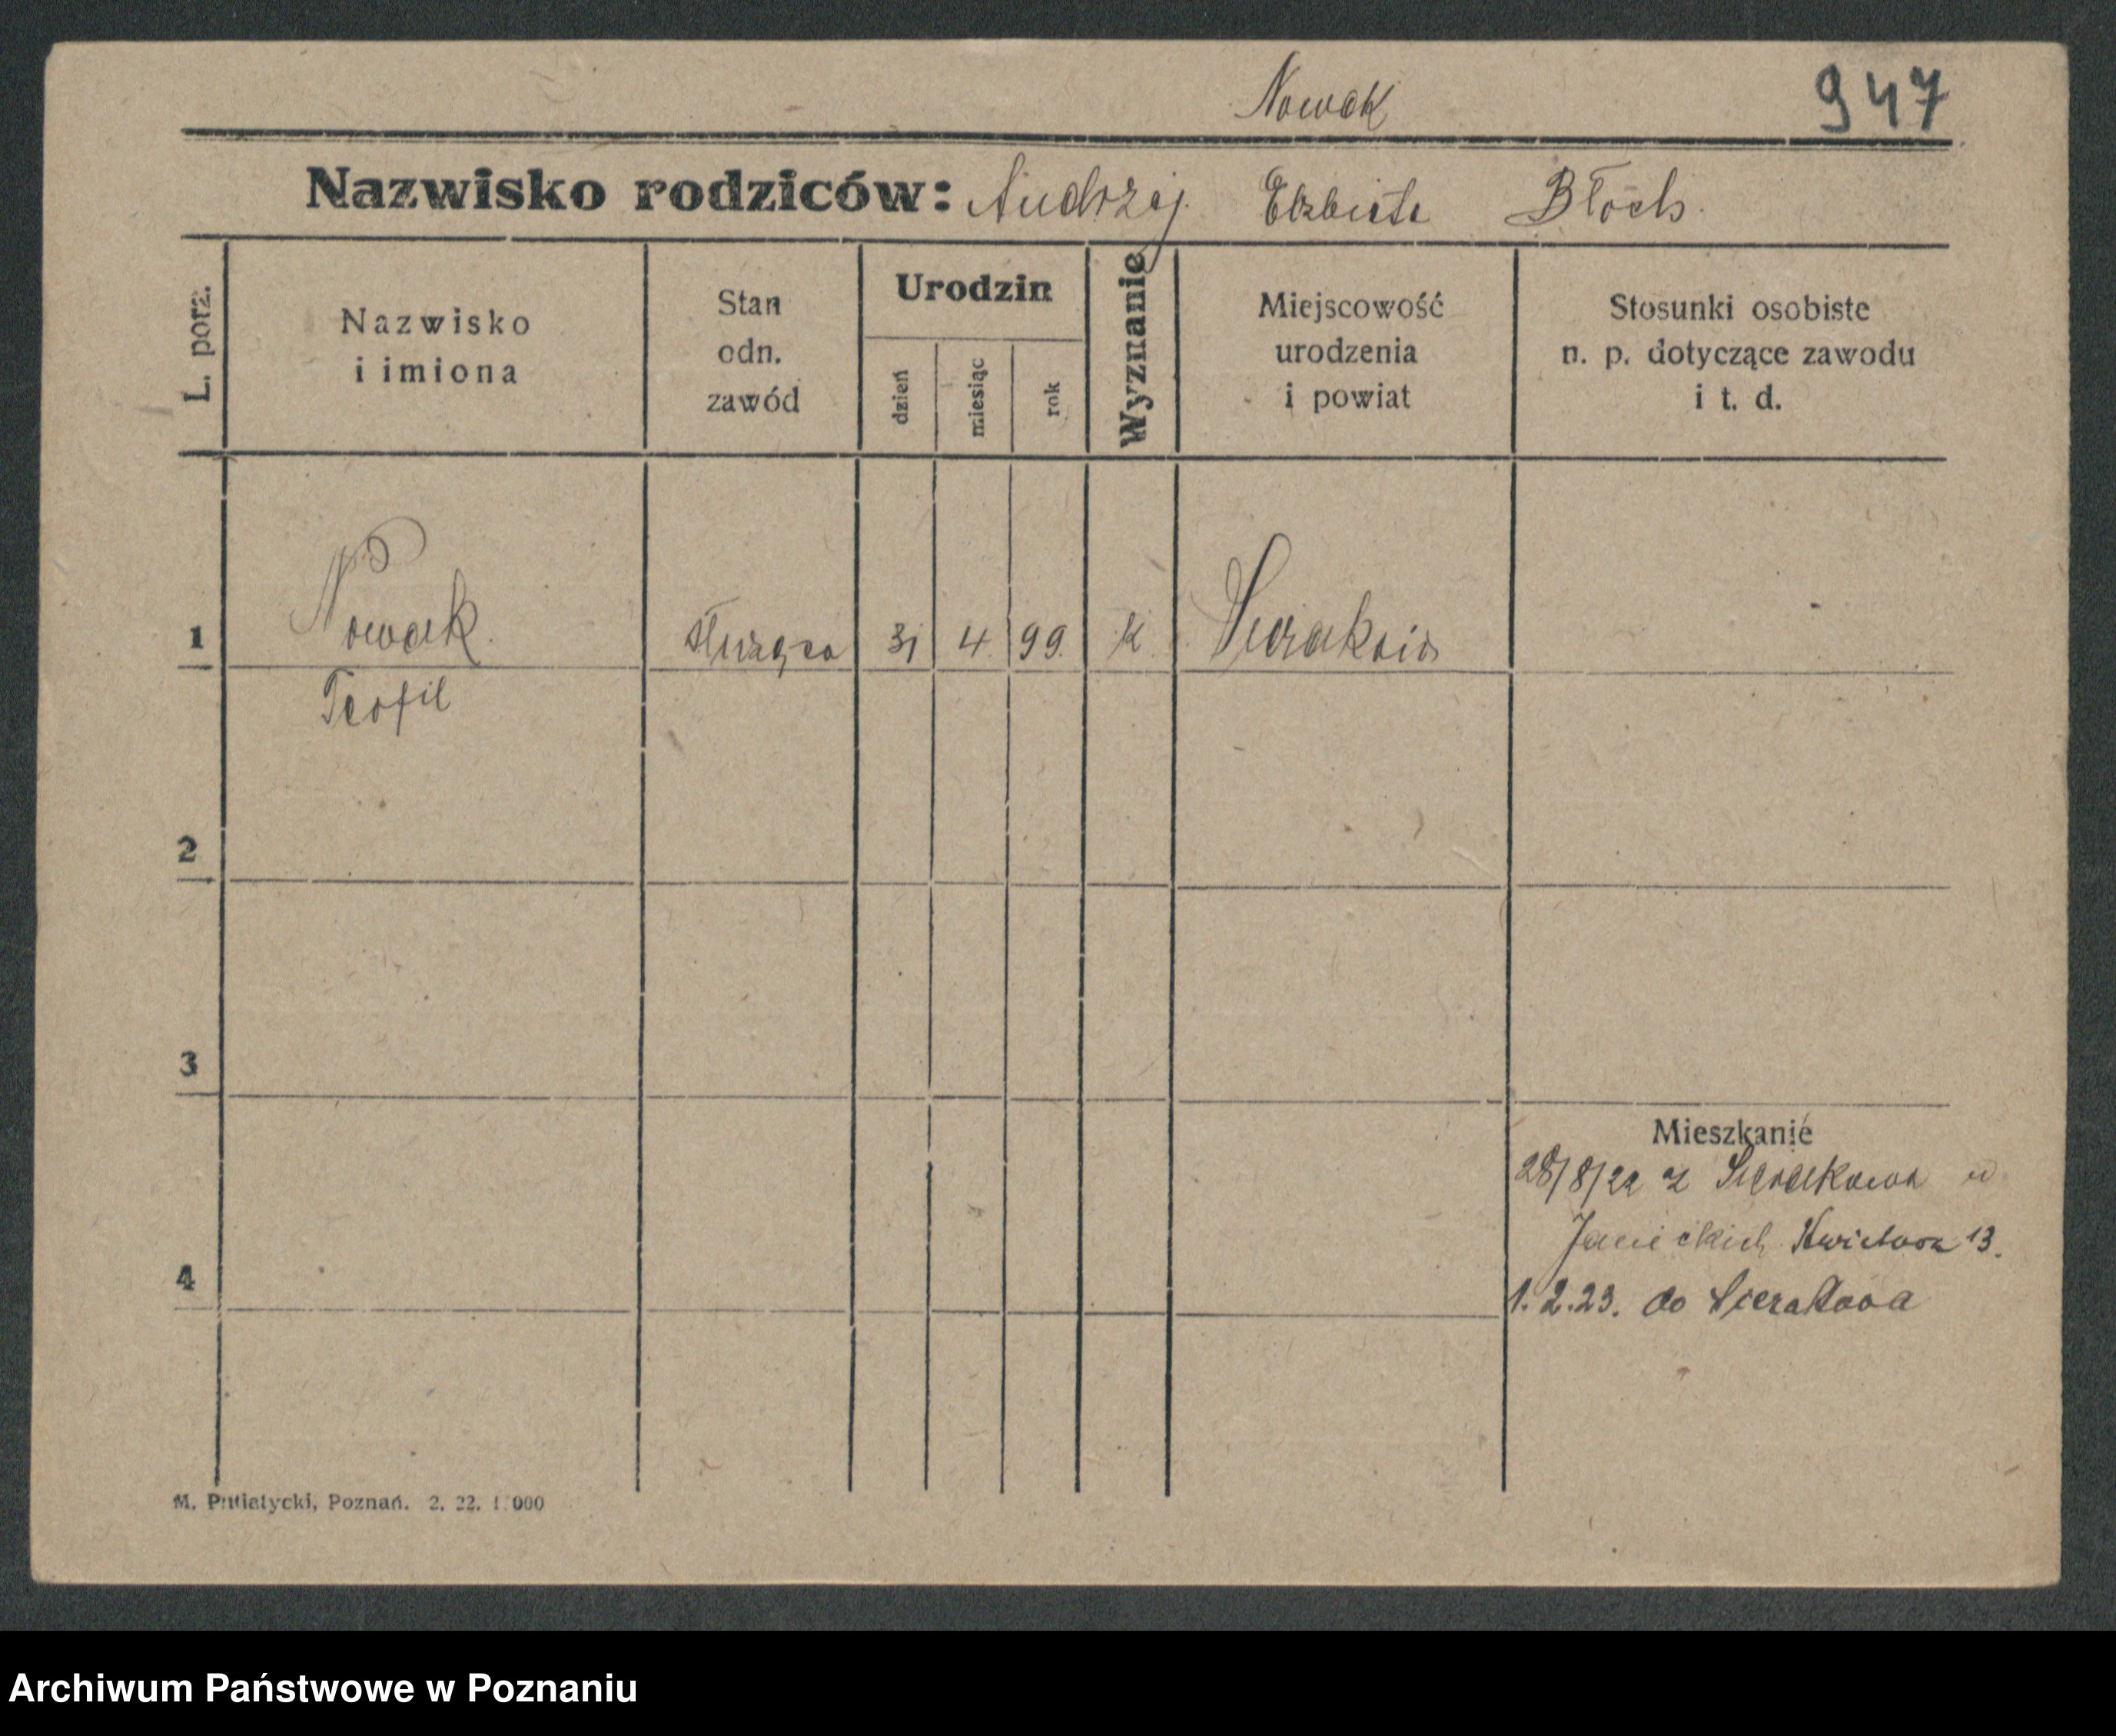 Nowak 947
Nazwisko rodziców: Andrzej Elżbieta Błoch.
L. porz.
Nazwisko i imiona
Stan odn. zawód
Urodzin
dzień
miesiąc
rok
Wyznanie
Miejscowość urodzenia i powiat
Stosunki osobiste n. p. dotyczące zawodu i t. d.
1 Nowak służąca 31 4 99. K. Sieraków
Teofil
2
3
Mieszkanie
28/8/22 z Sierakowa u
Janickich Kwiatowa 13.
4
1.2.23. do Sierakowa
M. Putiatycki, Poznań. 2. 22.
Archiwum Państwowe w Poznaniu